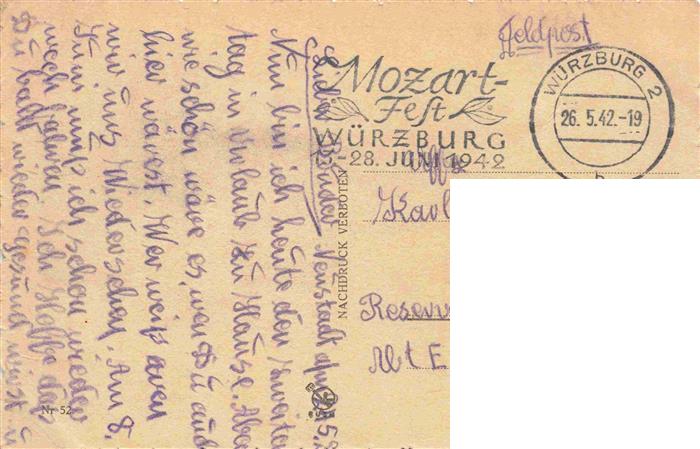 Feldpost
Mozart-
Fest
WÜRZBURG
-28. JUNI 1942
WÜRZBURG 2
26. 5. 42.-19
b
NACHDRUCK VERBOTEN
Nr 52
Karl
Reserv
Abt E
Lieber Bruder Neustadt 5.
Nun bin ich heute den zweiten
tag in Urlaub zu Hause. Aber
wie schön wäre es, wen Du auch
hier wärest. Wer weiß wen
wir uns Wiedersehen. Am 8.
Juni muß ich schon wieder
nach
Ich Hoffe daß
Du bald wieder gesund wirst u